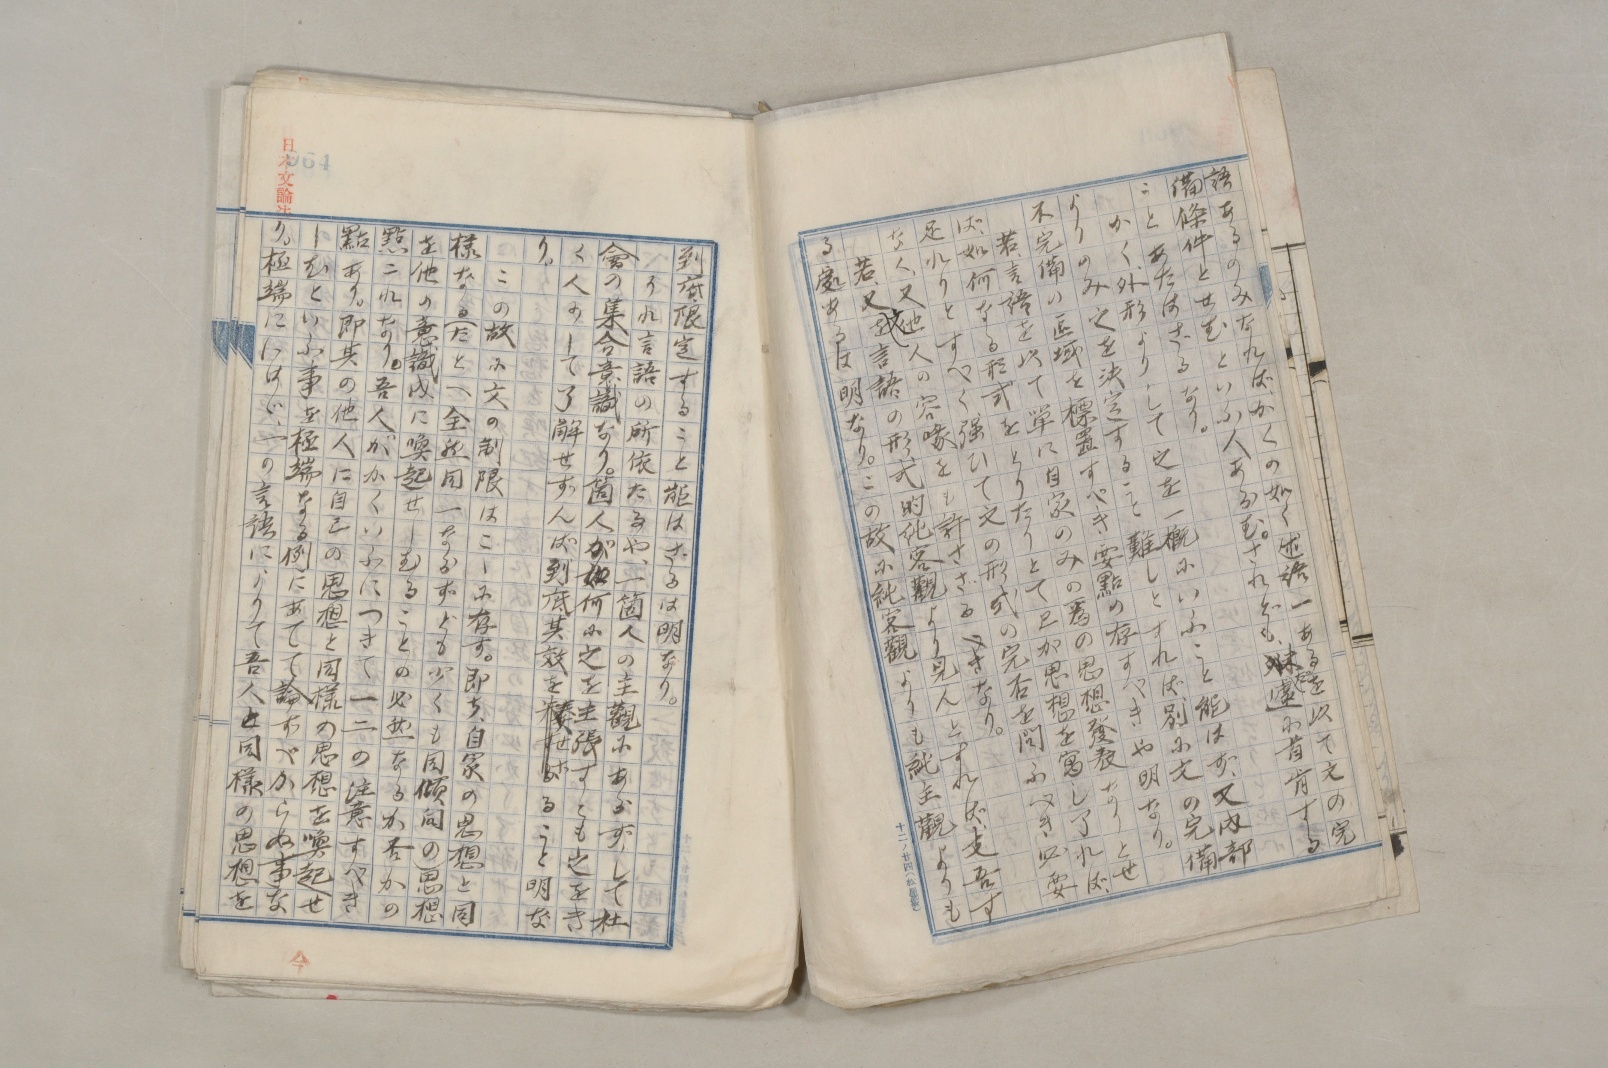 語あるのみなればかくの如く述語一あるを以て文の完
備條件とせむといふ人あるむ。されども、遽に首肯する
ことあたはざるなり。
かく外形よりして之を一概にいふこと能はず、又内部
よりのみ之を決定すること難しとすれば別に文の完備
不完備の区域を標置すべき要點の存すべきや明なり。
若、言語を以て単に自家のみの為の思想發表なりとせ
ば、如何なる形式をとりたりとて己が思想を寓し了れば
足れりとすべく強ひて文の形式の完否を問ふべき必要
なく、又他人の容喙をも許さざるべきなり。
若、又言語の形式的純客觀より見んとすれば、吾す
る處あるは明なり。この故に純客觀よりも純主觀よりも
到底限定すること能はざるは明なり。
それ言語の所依たるや、一箇人の主觀にあらずして社
會の集合意識なり。箇人が如何に之を主張すとも之をき
く人にして了解せずんば到底其效を奏せざること明な
り。
この故に文の制限はこゝに存す。即ち、自家の思想と同
様なる(たとへ全然同一ならずとも少くも同傾向の思想
を他の意識内に喚起せしむることの必然なるか否かの
點これなり。吾人がかくいふにつきて一二の注意すべき
點あり。即其の他人に自己の思想と同様の思想を喚起せ
しむといふ事を極端なる例にあてて論ずべからぬ事な
り。極端にいはゞ、一の言語によりて吾人と同様の思想を
十二ノ廿四
日本文論
064